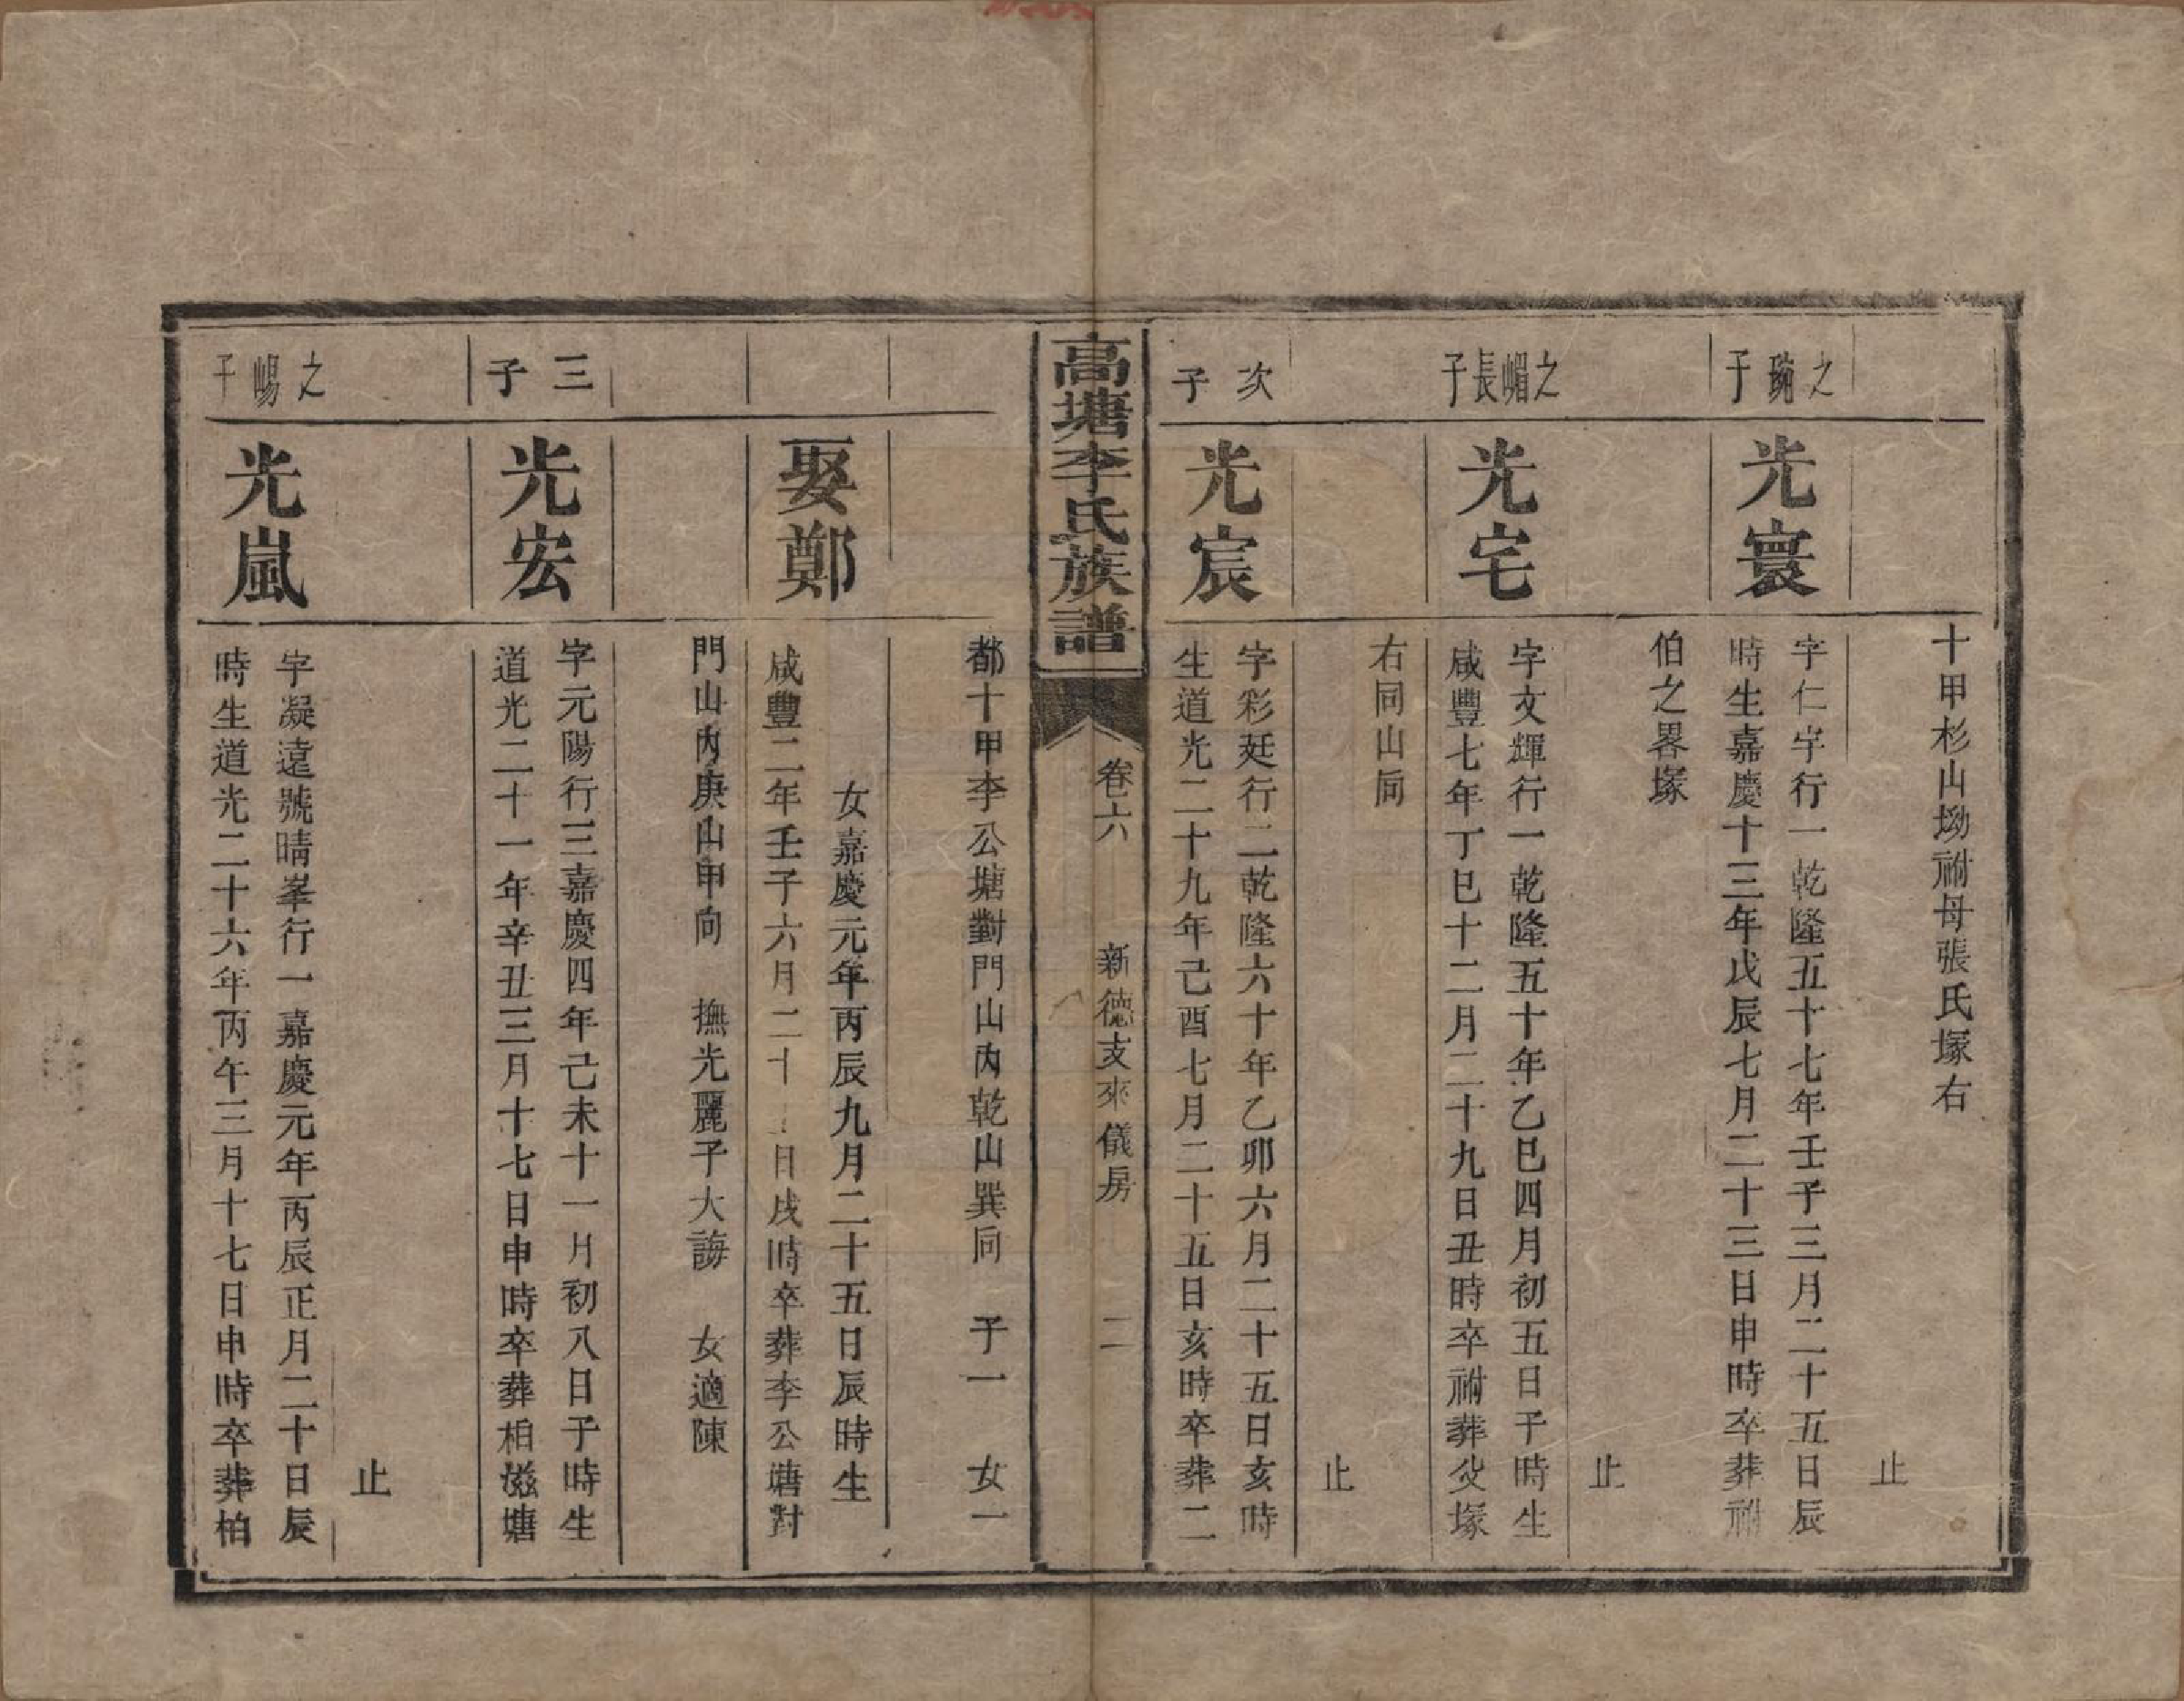 十甲杉山坳祔母張氏塚右
止
之子
光寰
字仁宇行一乾隆五十七年壬子三月二十五日辰
時生嘉慶十三年戊辰七月二十三日申時卒葬祔
伯之畧塚
止
之嵋長子
光宅
字文輝行一乾隆五十年乙巳四月初五日子時生
咸豐七年丁巳十二月二十九日丑時卒祔葬父塚
右同山同
止
次子
光宸
字彩廷行二乾隆六十年乙卯六月二十五日亥時
生道光二十九年己酉七月二十五日亥時卒葬二
高塘李氏族譜
卷六
新德支來儀房
二
都十甲李公塘對門山內乾山巽同 子一 女一
娶鄭
女嘉慶元年丙辰九月二十五日辰時生
咸豐二年壬子六月二十日戌時卒葬李公塘對
門山內庚山甲向 撫光麗子大誨 女適陳
三子
光宏
字元陽行三嘉慶四年己未十一月初八日子時生
道光二十一年辛丑三月十七日申時卒葬柏滋塘
止
之崵子
光嵐
字凝遠號晴峯行一嘉慶元年丙辰正月二十日辰
時生道光二十六年丙午三月十七日申時卒葬柏